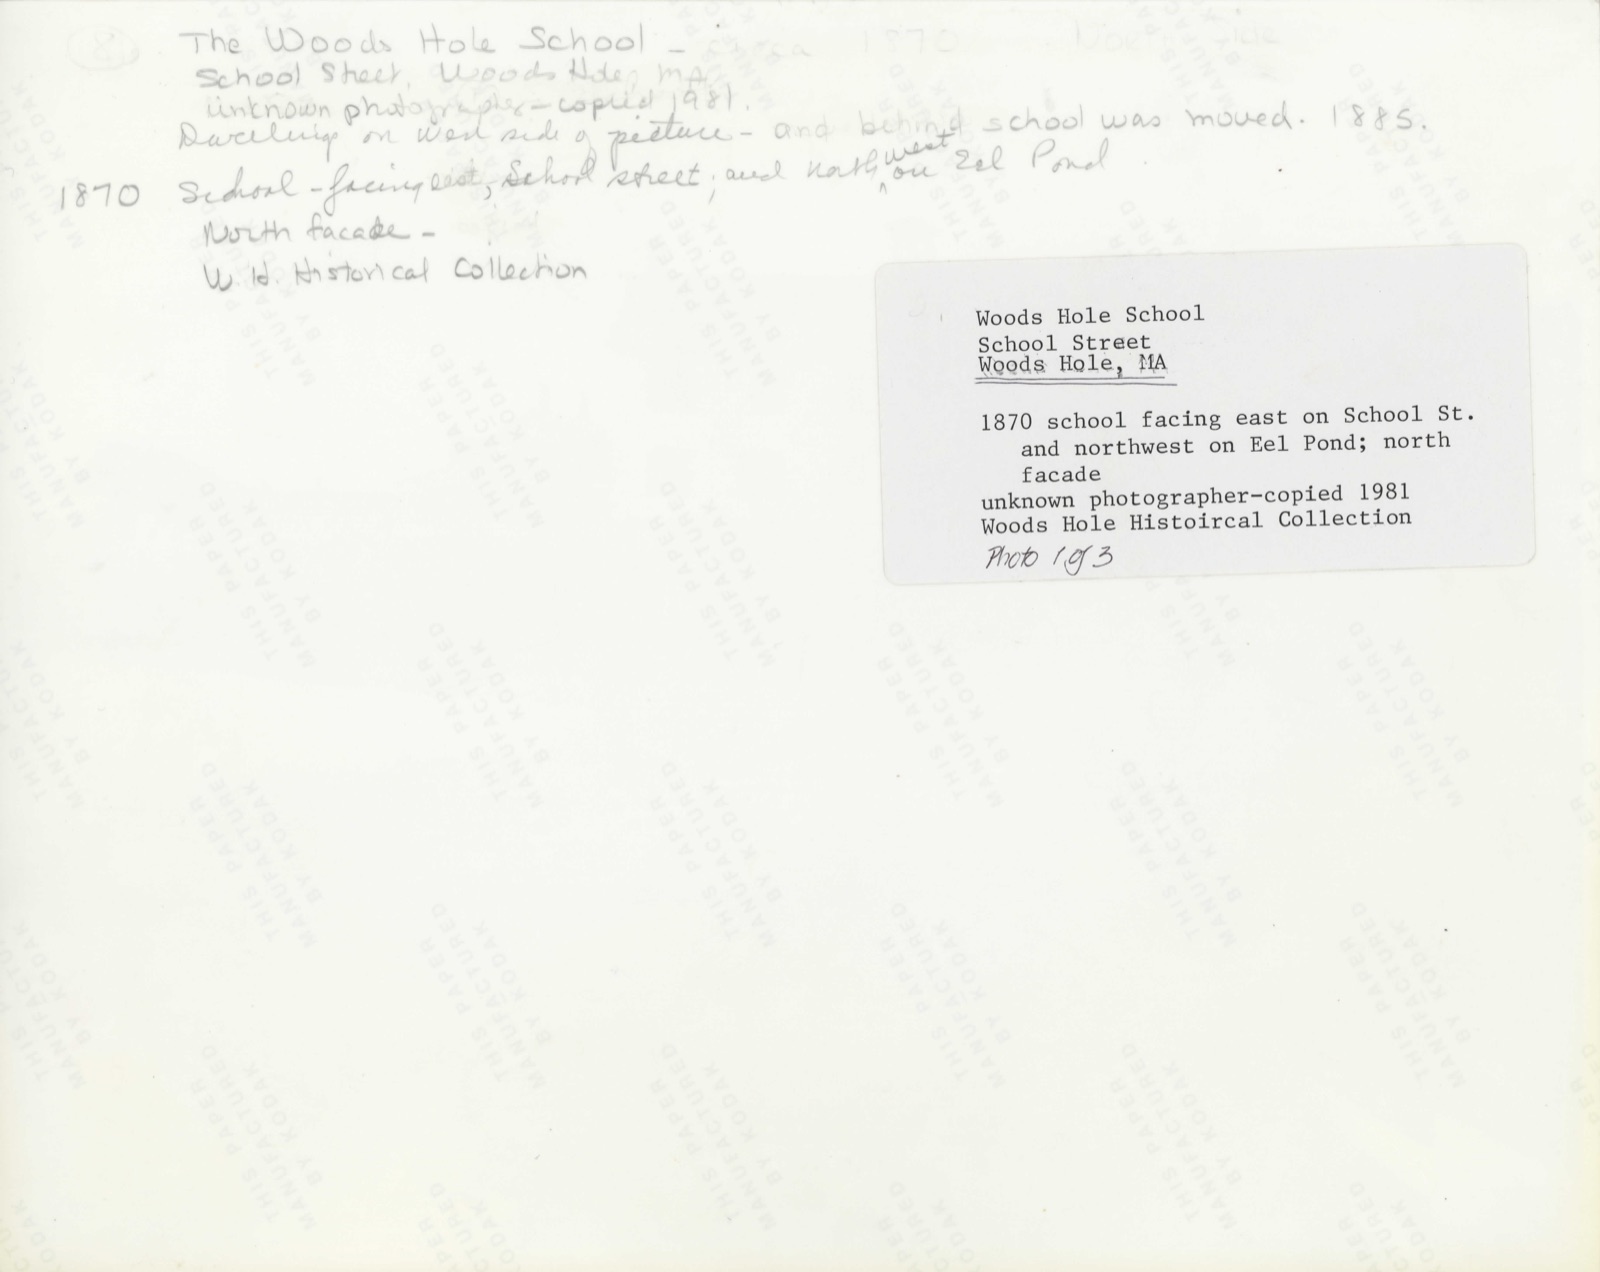 The Woods Hole School - 1870
School Street, Woods Hole, MA
unknown photographer - copied 1981.
Dwellings on west side of picture - and behind school was moved. 1885.
1870 School - facing east, School street; and north west on Eel Pond
North facade -
W. H. Historical Collection
Woods Hole School
School Street
Woods Hole, MA
1870 school facing east on School St.
and northwest on Eel Pond; north
facade
unknown photographer-copied 1981
Woods Hole Histoircal Collection
Photo 1 of 3
THIS PAPER
MANUFACTURED
BY KODAK